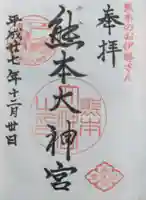 熊本のお伊勢さん
奉拝
熊本大神宮
平成廿七年十二月廿日